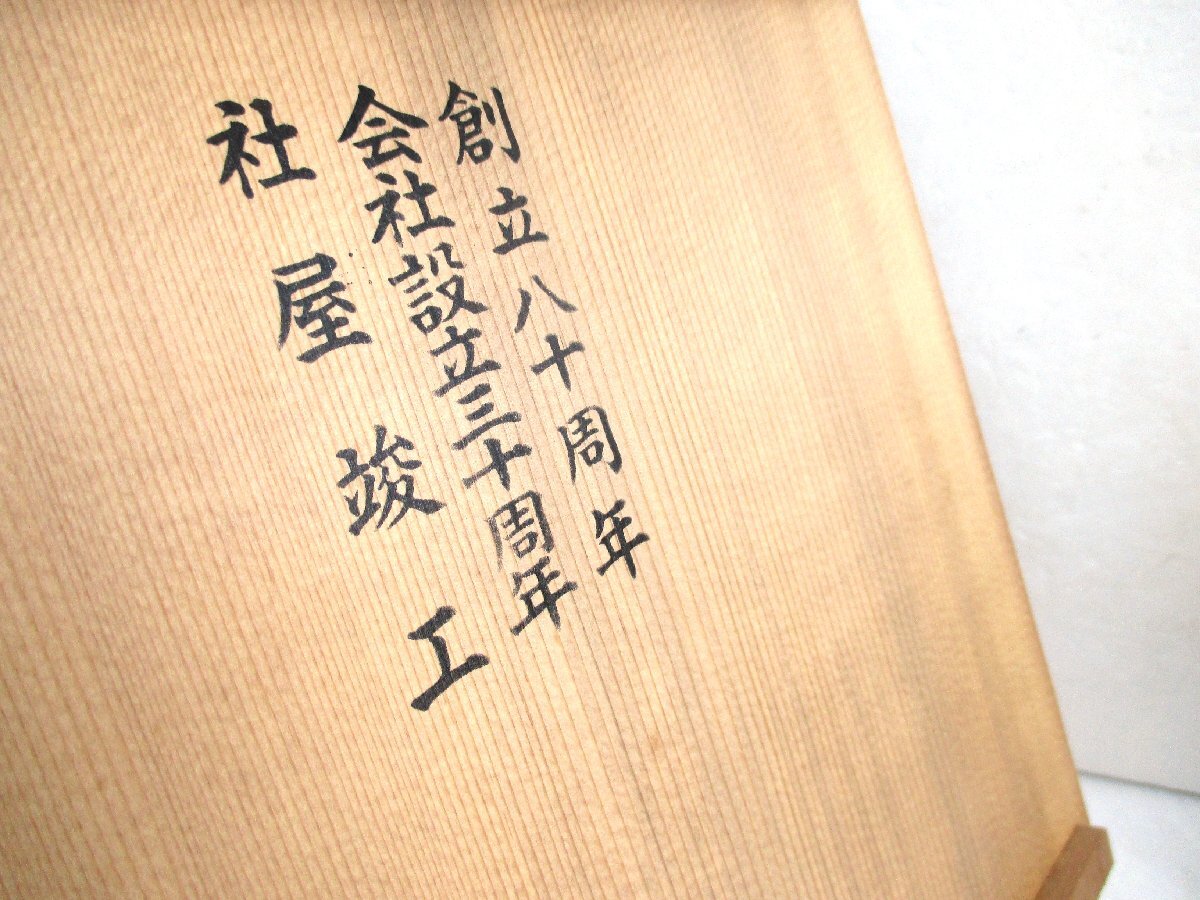 創立八十周年
会社設立三十周年
社屋竣工